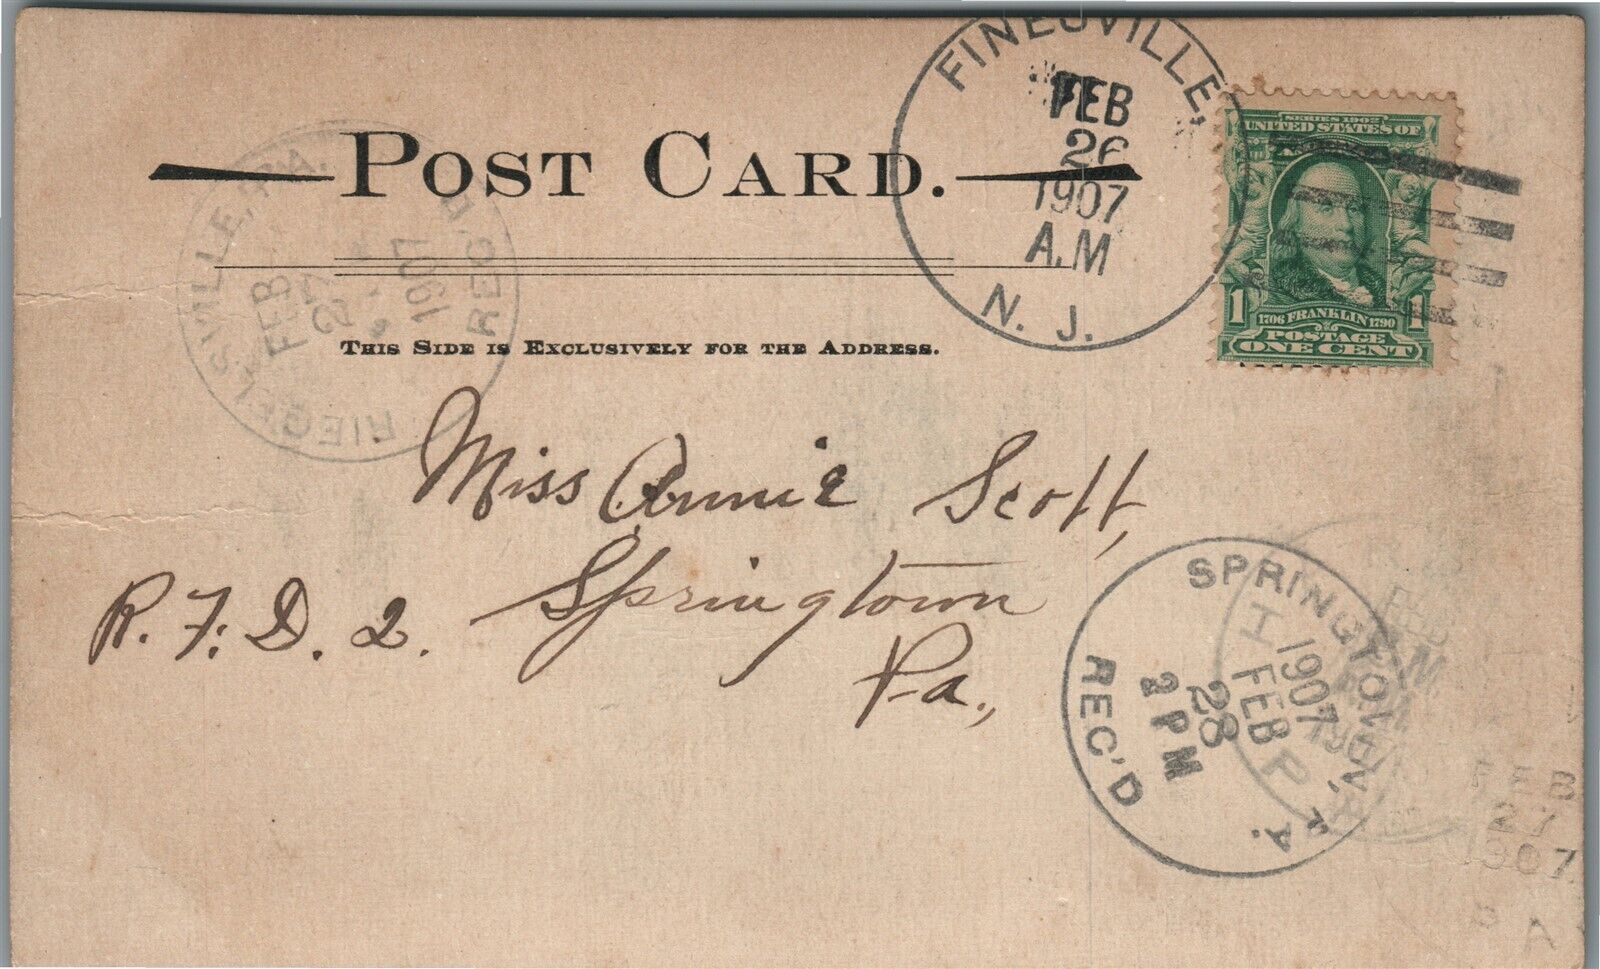 FINESVILLE,
FEB
26
1907
A.M
N. J.
SERIES 1902
UNITED STATES OF
1706 FRANKLIN 1790
1 1
POSTAGE
ONE CENT
POST CARD.
RIEGELSVILLE, PA.
FEB
27
1907
REC'D
THIS SIDE IS EXCLUSIVELY FOR THE ADDRESS.
Miss Annie Scott,
Springtown
R. F. D. 2.
Pa.,
SPRINGTOWN, PA.
1907
FEB
28
2 PM
REC'D
FEB
27
1907